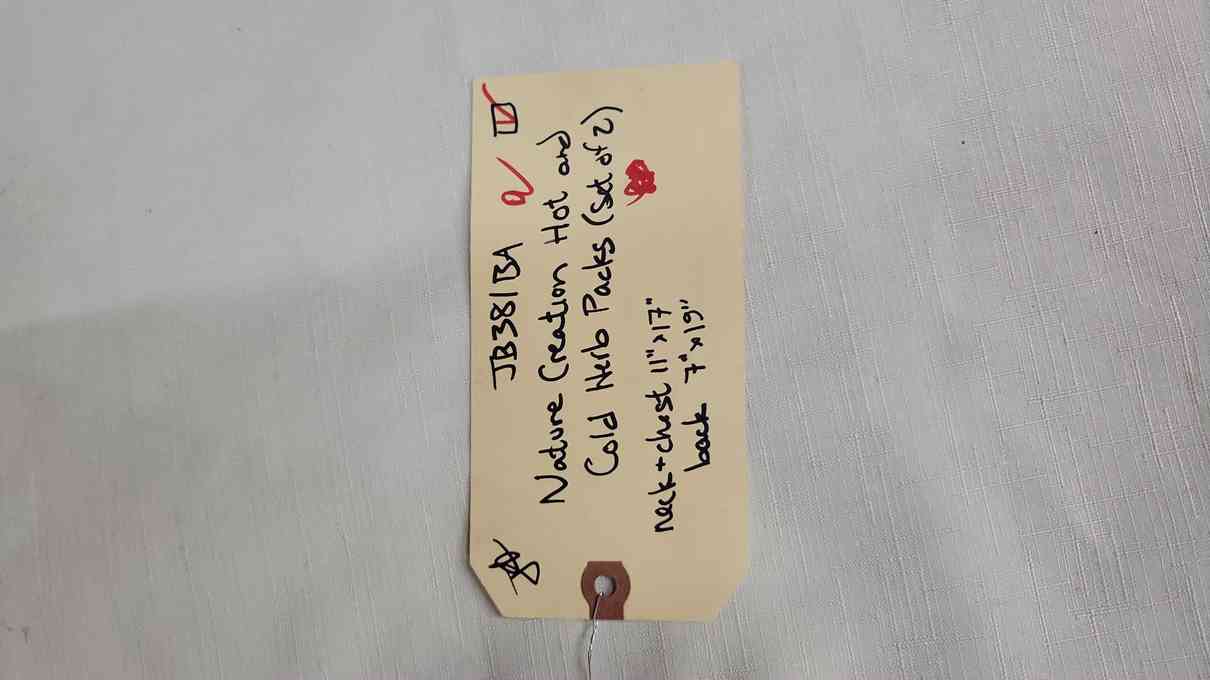 JB381BA
Nature Creation Hot and
Cold Herb Packs (set of 2)
neck + chest 11" x 17"
back 7" x 19"